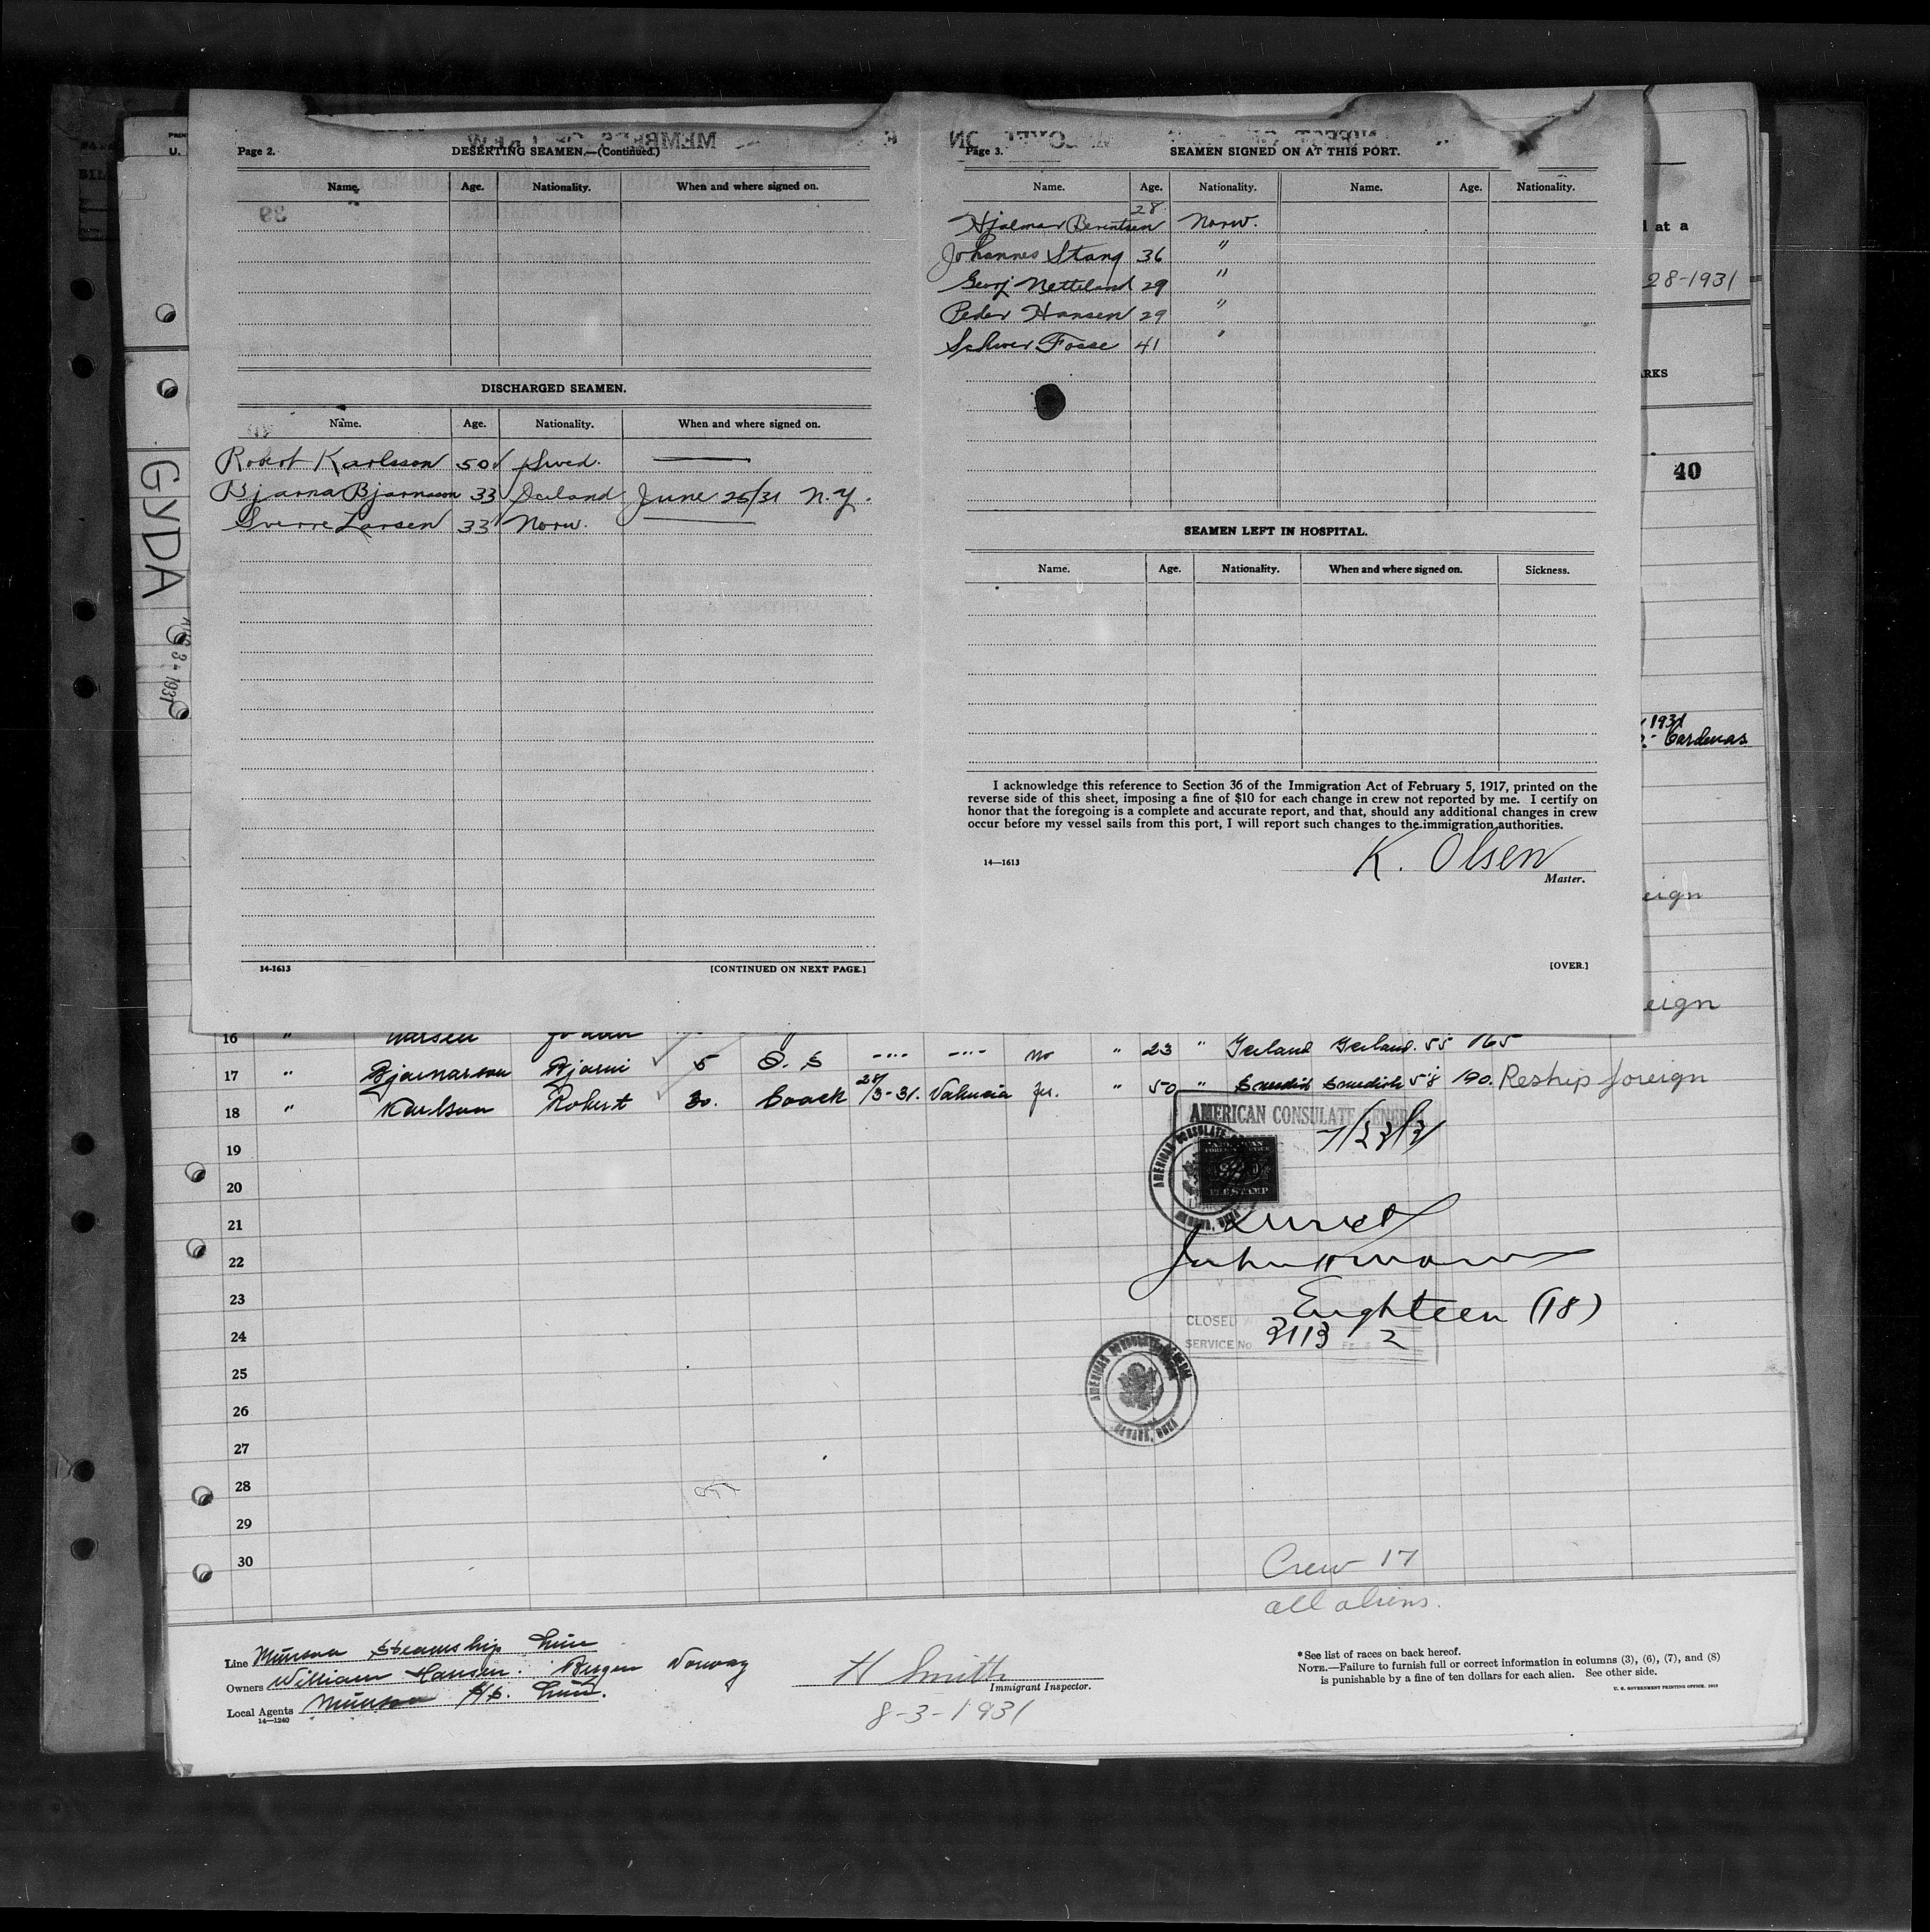 Page 2.
DESERTING SEAMEN.—(Continued.)
Name. Age. Nationality. When and where signed on.
DISCHARGED SEAMEN.
Name. Age. Nationality. When and where signed on.
Robert Karlsson 50 Swed. —
Bjarna Bjarnason 33 Iceland June 25/31 N.Y.
Sverre Larsen 33 Norw. —
14-1613
[CONTINUED ON NEXT PAGE.]
Page 3.
SEAMEN SIGNED ON AT THIS PORT.
Name. Age. Nationality. Name. Age. Nationality.
Hjalmar Berentsen 28 Norw.
Johannes Stang 36 "
Georg Netteland 29 "
Peder Hansen 29 "
Fosse 41 "
SEAMEN LEFT IN HOSPITAL.
Name. Age. Nationality. When and where signed on. Sickness.
I acknowledge this reference to Section 36 of the Immigration Act of February 5, 1917, printed on the
reverse side of this sheet, imposing a fine of $10 for each change in crew not reported by me. I certify on
honor that the foregoing is a complete and accurate report, and that, should any additional changes in crew
occur before my vessel sails from this port, I will report such changes to the immigration authorities.
14—1613
K. Olsen
Master.
[OVER.]
U.
GYDA
3 - 1931
at a
28-1931
RKS
40
1931
Cardenas
eign
eign
16 "
17 " Bjarnarson Bjarni 5 O. S no " 23 " Iceland Iceland 55 165
18 " Karlson Robert 30. Coock 28/3-31. Valencia " 50 " Swedish Swedish 58 190. Reship foreign
19
20
21
22
23
24
25
26
27
28
29
30
AMERICAN CONSULATE GENERAL
7/28/31
Eighteen (18)
CLOSED
SERVICE No. 3113 2
AMERICAN CONSULATE GENERAL
HAVANA, CUBA
Crew 17
all aliens.
Line Munson Steamship Line
Owners William Hansen. Bergen Norway
Local Agents Munson SS. Line.
14—1240
H Smith
Immigrant Inspector.
8-3-1931
*See list of races on back hereof.
NOTE.—Failure to furnish full or correct information in columns (3), (6), (7), and (8)
is punishable by a fine of ten dollars for each alien. See other side.
U. S. GOVERNMENT PRINTING OFFICE.